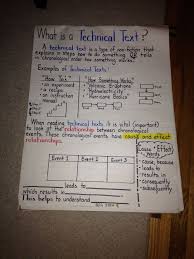 What is a Technical Text?
A technical text is a type of non-fiction that
explains in steps how to do something OR tells
in chronological order how something works.
Examples of Technical Texts:
"How To's"
• an experiment
• a recipe
• an instruction
manual
"How Something Works"
• Volcanic Eruptions
• Hydroelectricity
• Hurricane Basics
When reading technical texts it is vital (important)
to look at the relationships between chronological
events. These chronological events have cause and effect
relationships.
Event 1 Event 2 Event 3
leads to
which results
This helps to understand
Cause + Effect
Words
• cause
• because
• leads to
• as a result
• consequently
• subsequently